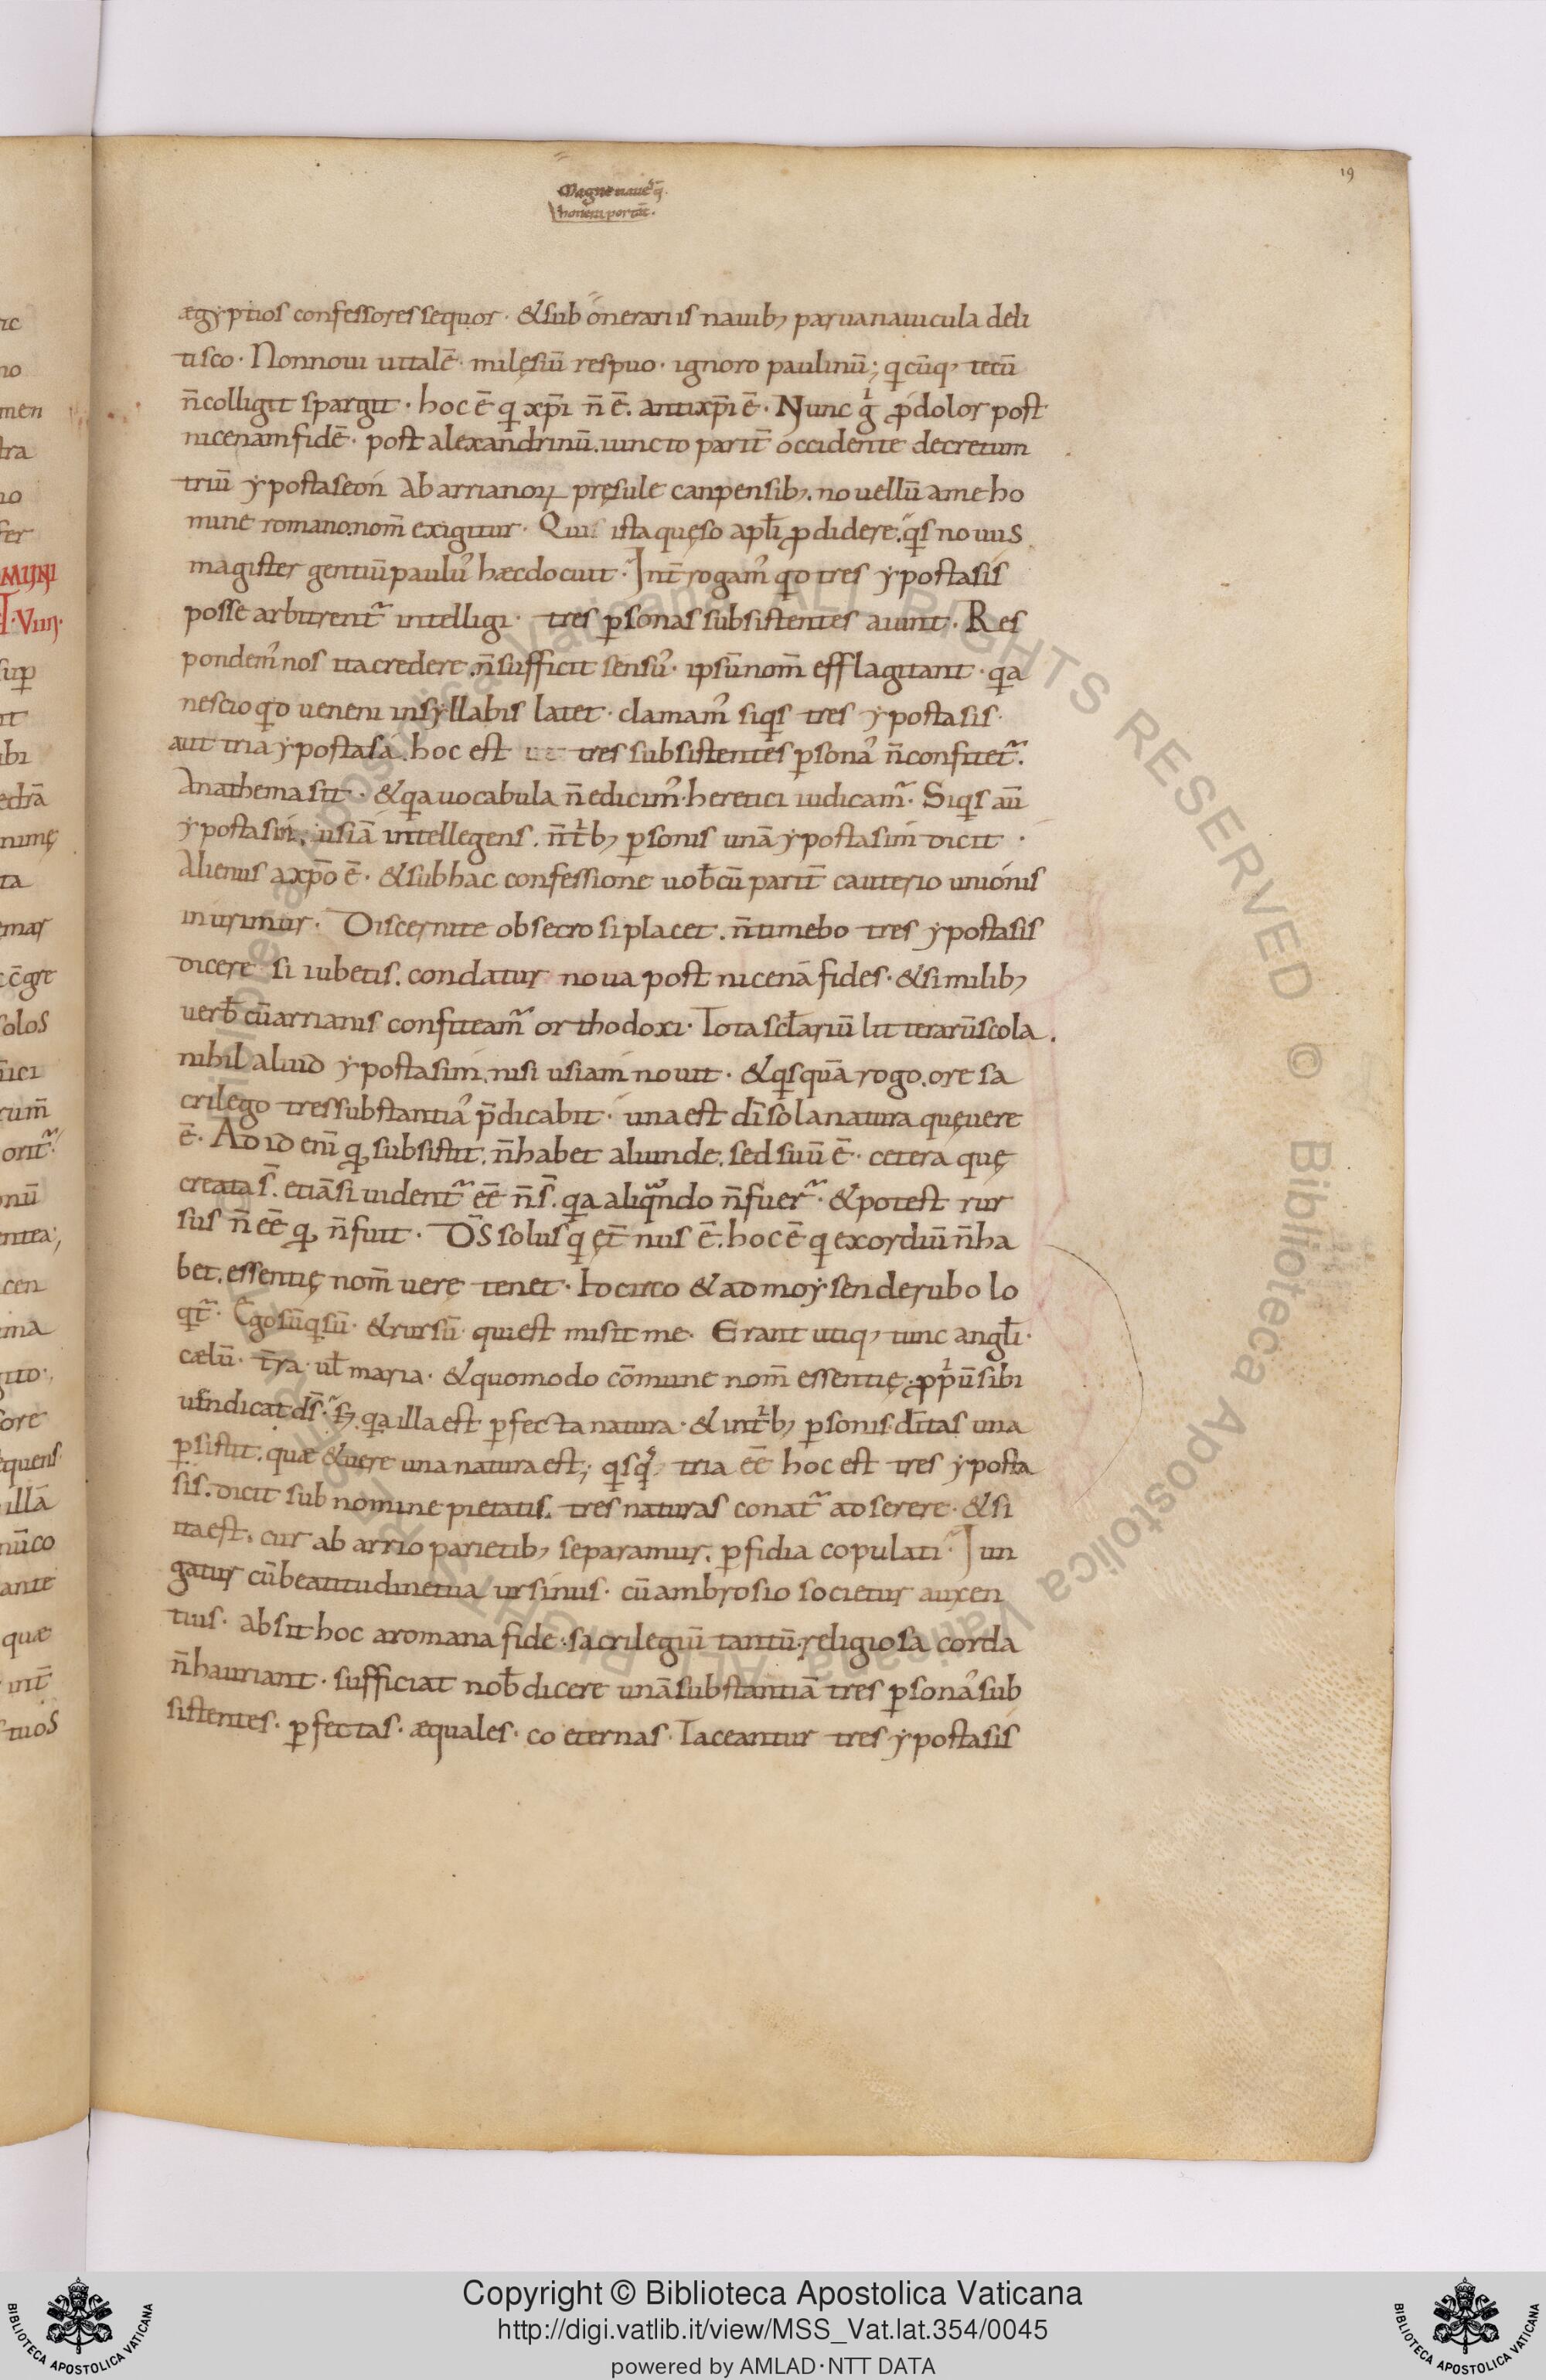 19
Magne naues q̄
honera portāt.
ægyptios confessores sequor · & sub onerariis nauib; parua nauicula deli
tisco · Non noui uitalē · milęsiū respuo · ignoro paulinū; qicūq; tecū
n̄ colligit spargit · hoc ē qi xp̄i n̄ ē. antixp̄i ē · Nunc gͥ ꝓ dolor post
nicenam fidē · post alexandrinū. iuncto parit̄ occidente decretum
triū ypostaseon ab arrianoꝝ pręsule canpensib; . nouellū a me ho
mine romano. nom̄ exigitur · Qui ista quęso apl̄i ꝓdidere. qis nouus
magister gentiū paulus hæc docuit · Int̄rogamꝰ qid tres ypostasis
posse arbitrent᷑ intelligi · tres ꝑsonas subsistentes aiunt · Res
pondemꝰ nos ita credere. n̄ sufficit sensꝰ · ipsū nom̄ efflagitant · qia
nescio qid ueneni in syllabis latet · clamamꝰ siqis tres ypostasis ·
aut tria ypostasa. hoc est tres subsistentes ꝑsonaꝰ n̄ confitet᷑.
Anathema sit · & qia uocabula n̄ edicimꝰ. heretici iudicam᷑ · Siqis aū
ypostasin; usiā intellegens. n̄ tͥb; ꝑsonis unā ypostasim dicit ·
Alienus a xp̄o ē · & sub hac confessione uob̄cū parit̄ cauterio unionis
inurimur · Discernite obsecro si placet. n̄ timebo tres ypostasis
dicere si iubetis. condatur noua post nicenā fides · & similib;
uerb̄ cū arrianis confiteam᷑ orthodoxi · Tota scl̄ariū litterarū scola.
nihil aliud ypostasim. nisi usiam nouit · & qisquā rogo. ore sa
crilego tres substantiaꝰ p̄dicabit · una est dī sola natura quę uere
ē · Ad id eni̅ qd subsistit. n̄ habet aliunde. sed suū ē · cetera quę
creata s̄. etiā si uident᷑ eē n̄ s̄. qia aliqᵃndo n̄ fuer᷑ · & potest rur
sus n̄ eē qd n̄ fuit · D̄S solus qi ęt̄nus ē. hoc ē qi exordiū n̄ ha
bet. essentię nom̄ uere tenet · Idcirco & ad moysen de rubo lo
qit᷑ · Ego sū qi sū · & rursū · qui est misit me · Erant utiq; tunc angl̄i ·
cælū · t̄ra · ul̄ maria · & quomodo cōmune nom̄ essentię. ꝓpͥū sibi
uendicat dr̄ · s; qia illa est ꝑfecta natura · & in tͥb; ꝑsonis dītas una
ꝑsistit. quæ & uere una natura est; qisqis tria eē hoc est tres yposta
sis. dicit sub nomine pietatis. tres naturas conat᷑ adserere · & si
ita est. cur ab arrio parietib; separamur. ꝑfidia copulati · Iun
gatur cū beatitudine tua ursinus · cū ambrosio societur auxen
tius · absit hoc a romana fide · sacrilegiū tantū. religiosa corda
n̄ hauriant · sufficiat nob̄ dicere unā substantiā tres ꝑsonaꝰ sub
sistentes · ꝑfectas · æquales · coeternas · Taceantur tres ypostasis
Copyright © Biblioteca Apostolica Vaticana
http://digi.vatlib.it/view/MSS_Vat.lat.354/0045
powered by AMLAD·NTT DATA